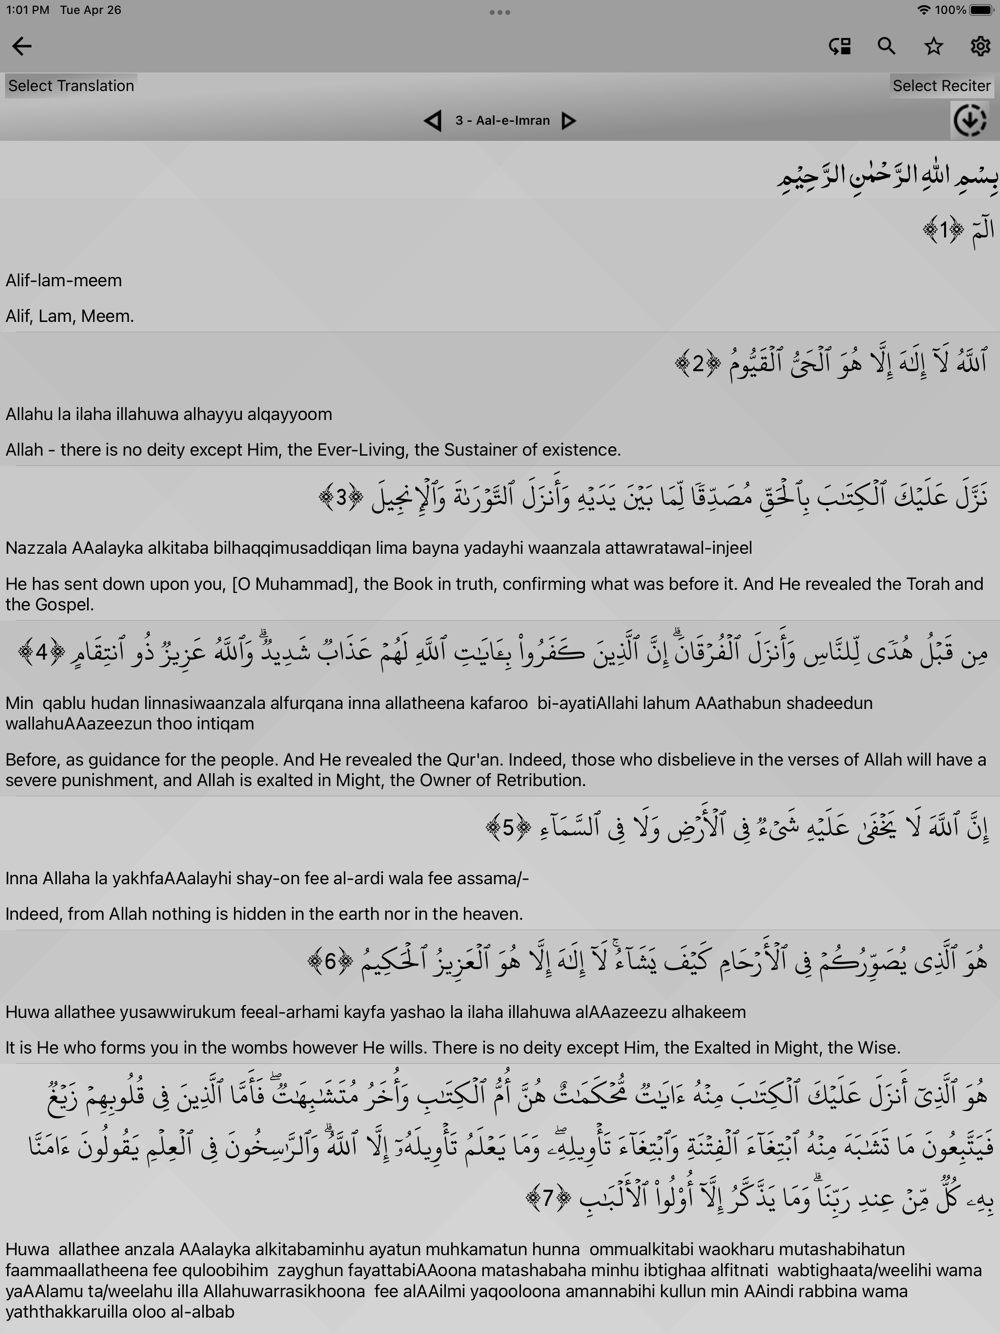 1:01 PM Tue Apr 26 100%
Select Translation Select Reciter
3 - Aal-e-Imran
بِسْمِ اللهِ الرَّحْمٰنِ الرَّحِيْمِ
الٓمٓ ﴿1﴾
Alif-lam-meem
Alif, Lam, Meem.
ٱللَّهُ لَآ إِلَـٰهَ إِلَّا هُوَ ٱلْحَىُّ ٱلْقَيُّومُ ﴿2﴾
Allahu la ilaha illahuwa alhayyu alqayyoom
Allah - there is no deity except Him, the Ever-Living, the Sustainer of existence.
نَزَّلَ عَلَيْكَ ٱلْكِتَـٰبَ بِٱلْحَقِّ مُصَدِّقًا لِّمَا بَيْنَ يَدَيْهِ وَأَنزَلَ ٱلتَّوْرَىٰةَ وَٱلْإِنجِيلَ ﴿3﴾
Nazzala AAalayka alkitaba bilhaqqimusaddiqan lima bayna yadayhi waanzala attawratawal-injeel
He has sent down upon you, [O Muhammad], the Book in truth, confirming what was before it. And He revealed the Torah and
the Gospel.
مِن قَبْلُ هُدًى لِّلنَّاسِ وَأَنزَلَ ٱلْفُرْقَانَ ۗ إِنَّ ٱلَّذِينَ كَفَرُوا۟ بِـَٔايَـٰتِ ٱللَّهِ لَهُمْ عَذَابٌ شَدِيدٌ ۗ وَٱللَّهُ عَزِيزٌ ذُو ٱنتِقَامٍ ﴿4﴾
Min qablu hudan linnasiwaanzala alfurqana inna allatheena kafaroo bi-ayatiAllahi lahum AAathabun shadeedun
wallahuAAazeezun thoo intiqam
Before, as guidance for the people. And He revealed the Qur'an. Indeed, those who disbelieve in the verses of Allah will have a
severe punishment, and Allah is exalted in Might, the Owner of Retribution.
إِنَّ ٱللَّهَ لَا يَخْفَىٰ عَلَيْهِ شَىْءٌ فِى ٱلْأَرْضِ وَلَا فِى ٱلسَّمَآءِ ﴿5﴾
Inna Allaha la yakhfaAAalayhi shay-on fee al-ardi wala fee assama/-
Indeed, from Allah nothing is hidden in the earth nor in the heaven.
هُوَ ٱلَّذِى يُصَوِّرُكُمْ فِى ٱلْأَرْحَامِ كَيْفَ يَشَآءُ ۚ لَآ إِلَـٰهَ إِلَّا هُوَ ٱلْعَزِيزُ ٱلْحَكِيمُ ﴿6﴾
Huwa allathee yusawwirukum feeal-arhami kayfa yashao la ilaha illahuwa alAAazeezu alhakeem
It is He who forms you in the wombs however He wills. There is no deity except Him, the Exalted in Might, the Wise.
هُوَ ٱلَّذِىٓ أَنزَلَ عَلَيْكَ ٱلْكِتَـٰبَ مِنْهُ ءَايَـٰتٌ مُّحْكَمَـٰتٌ هُنَّ أُمُّ ٱلْكِتَـٰبِ وَأُخَرُ مُتَشَـٰبِهَـٰتٌ ۖ فَأَمَّا ٱلَّذِينَ فِى قُلُوبِهِمْ زَيْغٌ
فَيَتَّبِعُونَ مَا تَشَـٰبَهَ مِنْهُ ٱبْتِغَآءَ ٱلْفِتْنَةِ وَٱبْتِغَآءَ تَأْوِيلِهِۦ ۗ وَمَا يَعْلَمُ تَأْوِيلَهُۥٓ إِلَّا ٱللَّهُ ۗ وَٱلرَّٰسِخُونَ فِى ٱلْعِلْمِ يَقُولُونَ ءَامَنَّا
بِهِۦ كُلٌّ مِّنْ عِندِ رَبِّنَا ۗ وَمَا يَذَّكَّرُ إِلَّآ أُو۟لُوا۟ ٱلْأَلْبَـٰبِ ﴿7﴾
Huwa allathee anzala AAalayka alkitabaminhu ayatun muhkamatun hunna ommualkitabi waokharu mutashabihatun
faammaallatheena fee quloobihim zayghun fayattabiAAoona matashabaha minhu ibtighaa alfitnati wabtighaata/weelihi wama
yaAAlamu ta/weelahu illa Allahuwarrasikhoona fee alAAilmi yaqooloona amannabihi kullun min AAindi rabbina wama
yaththakkaruilla oloo al-albab